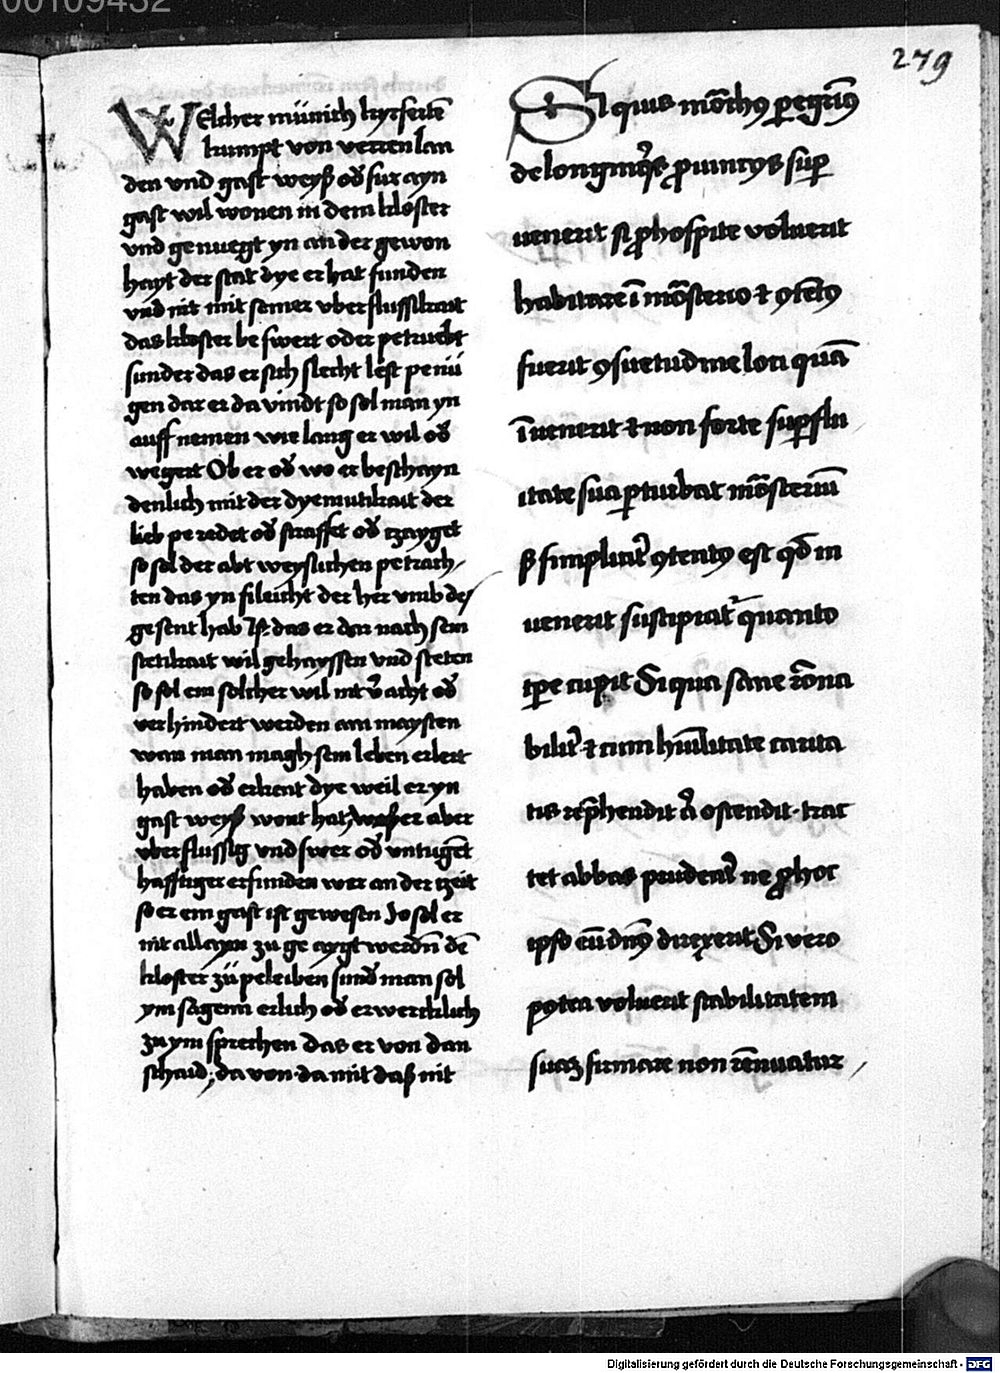 00109432
279
Welcher münich kyrferte
kumpt von verren lan
den vnd gast weyß od fur ayn
gast wil wonen in dem kloster
vnd genuegt yn an der gewon
hayt der stat dye er hat funden
vnd nit mit seiner vberflussikait
das kloster beswert oder petruebt
sunder das er sich slecht lest penü
gen dar er da vindt so sol man yn
auff nemen wie lang er wil od
wegert Ob er od wo er beschayn
denlich mit der dyemutikait der
lieb pe redet od straffet od tzayget
so sol der abt weyslichen petrach
ten das yn fileicht der her vmb des
gesent hab das er dar nach sein
stetikait wil gehayssen vnd steten
so sol ein solcher wil nit v̄acht od
verhindert werden am maysten
wan man magh sein leben erkert
haben od erkent dye weil er yn
gast weyß wont hat er aber
vberflussig vnd swer od vntugēt
hafftiger erfunden wer an der tzeit
so er ein gast ist gewesen Jo sol er
nit allayn zu ge aygt werdn dē
kloster zü peleiben sund man sol
ym sagenn erlich od erwercklich
zu ym sprechen das er von dan
schaid da von da mit daß nit
Si quis mōchꝰ pegrīꝰ
de longinqīs ꝓuincys sup
uenerit si ꝓ hospite voluerit
habitare ī mōsterio ⁊ ꝯtētꝰ
fuerit ꝯsuetudine loci quā
īuenerit ⁊ non forte supflu
itate sua pturbat mōsteriū
ß simplicit ꝯtentꝰ est qd in
uenerit suscipiat quanto
tpe cupit Si qua sane rōna
bilit ⁊ cum hūilitate carita
tis rephendit a ostendit trac
tet abbas prudent ne ꝓ hoc
ipso eū dnꝰ direxerit Si vero
postea voluerit stabilitatem
suaꝫ firmare non rēnuatur
Digitalisierung gefördert durch die Deutsche Forschungsgemeinschaft - DFG